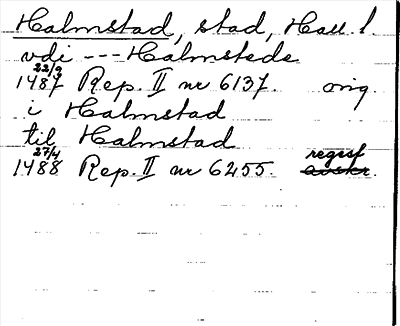 Halmstad, stad, Hall l.
vdi --- Halmstede
22/9
1487 Rep. II nr 6137. orig.
i Halmstad
til Halmstad
27/4 regest
1488 Rep. II nr 6255. avskr.